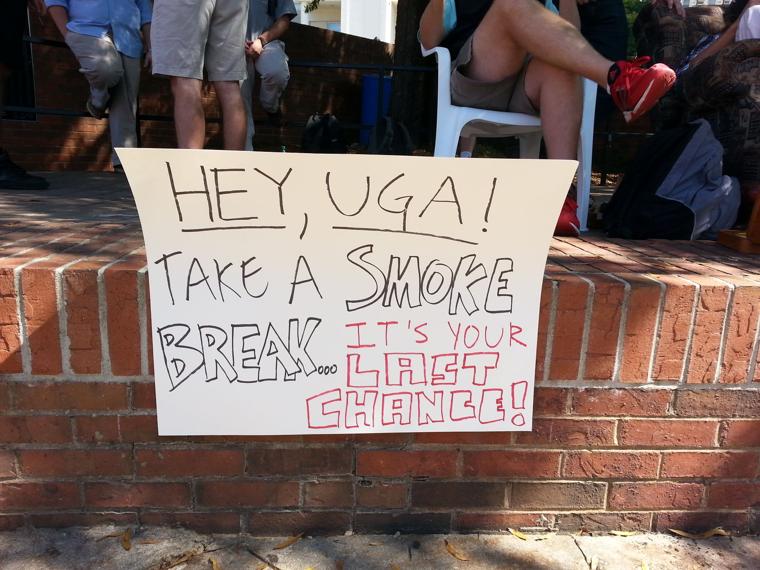 HEY, UGA!
TAKE A SMOKE
BREAK... IT'S YOUR
LAST
CHANCE!